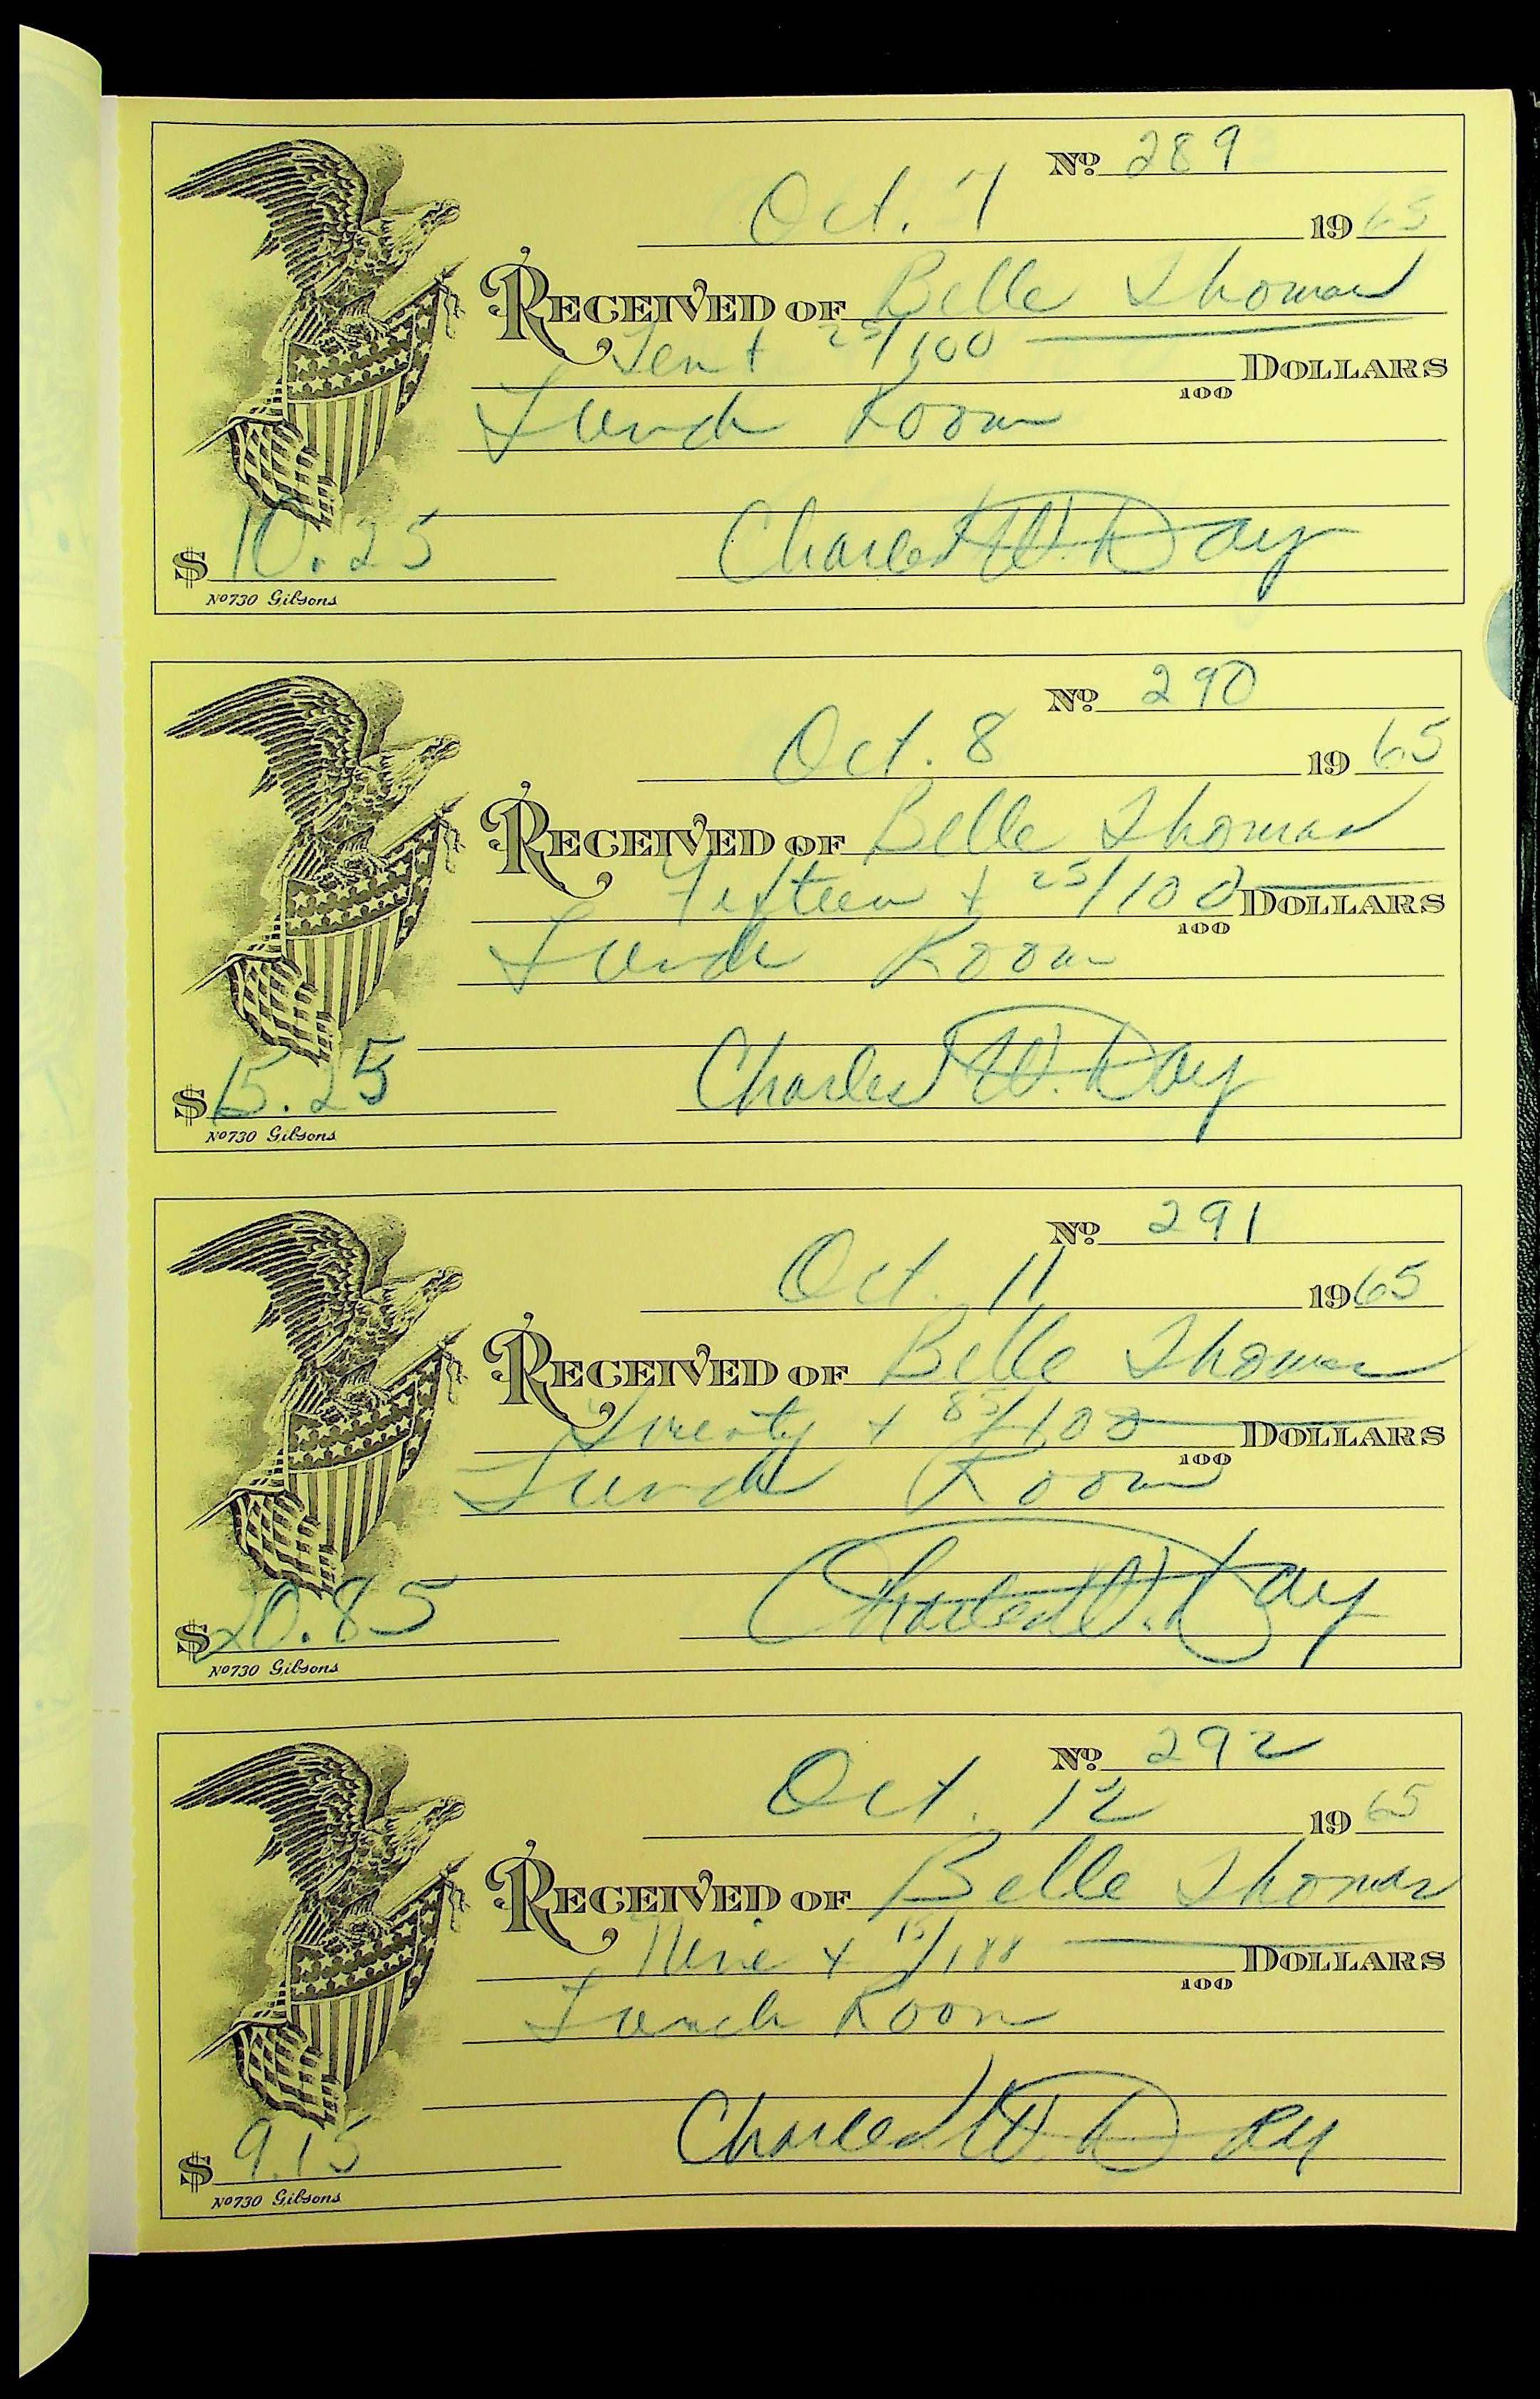 No. 289
Oct. 7 1965
RECEIVED OF Belle Thomas
Ten + 25/100 DOLLARS
100
Lunch Room
$ 10.25 Charles W. Day
No 730 Gibsons
No. 290
Oct. 8 1965
RECEIVED OF Belle Thomas
Fifteen + 25/100 DOLLARS
100
Lunch Room
$ 15.25 Charles W. Day
No 730 Gibsons
No. 291
Oct. 11 1965
RECEIVED OF Belle Thomas
Twenty + 85/100 DOLLARS
100
Lunch Room
$ 20.85 Charles W. Day
No 730 Gibsons
No. 292
Oct. 12 1965
RECEIVED OF Belle Thomas
Nine + 15/100 DOLLARS
100
Lunch Room
$ 9.15 Charles W. Day
No 730 Gibsons